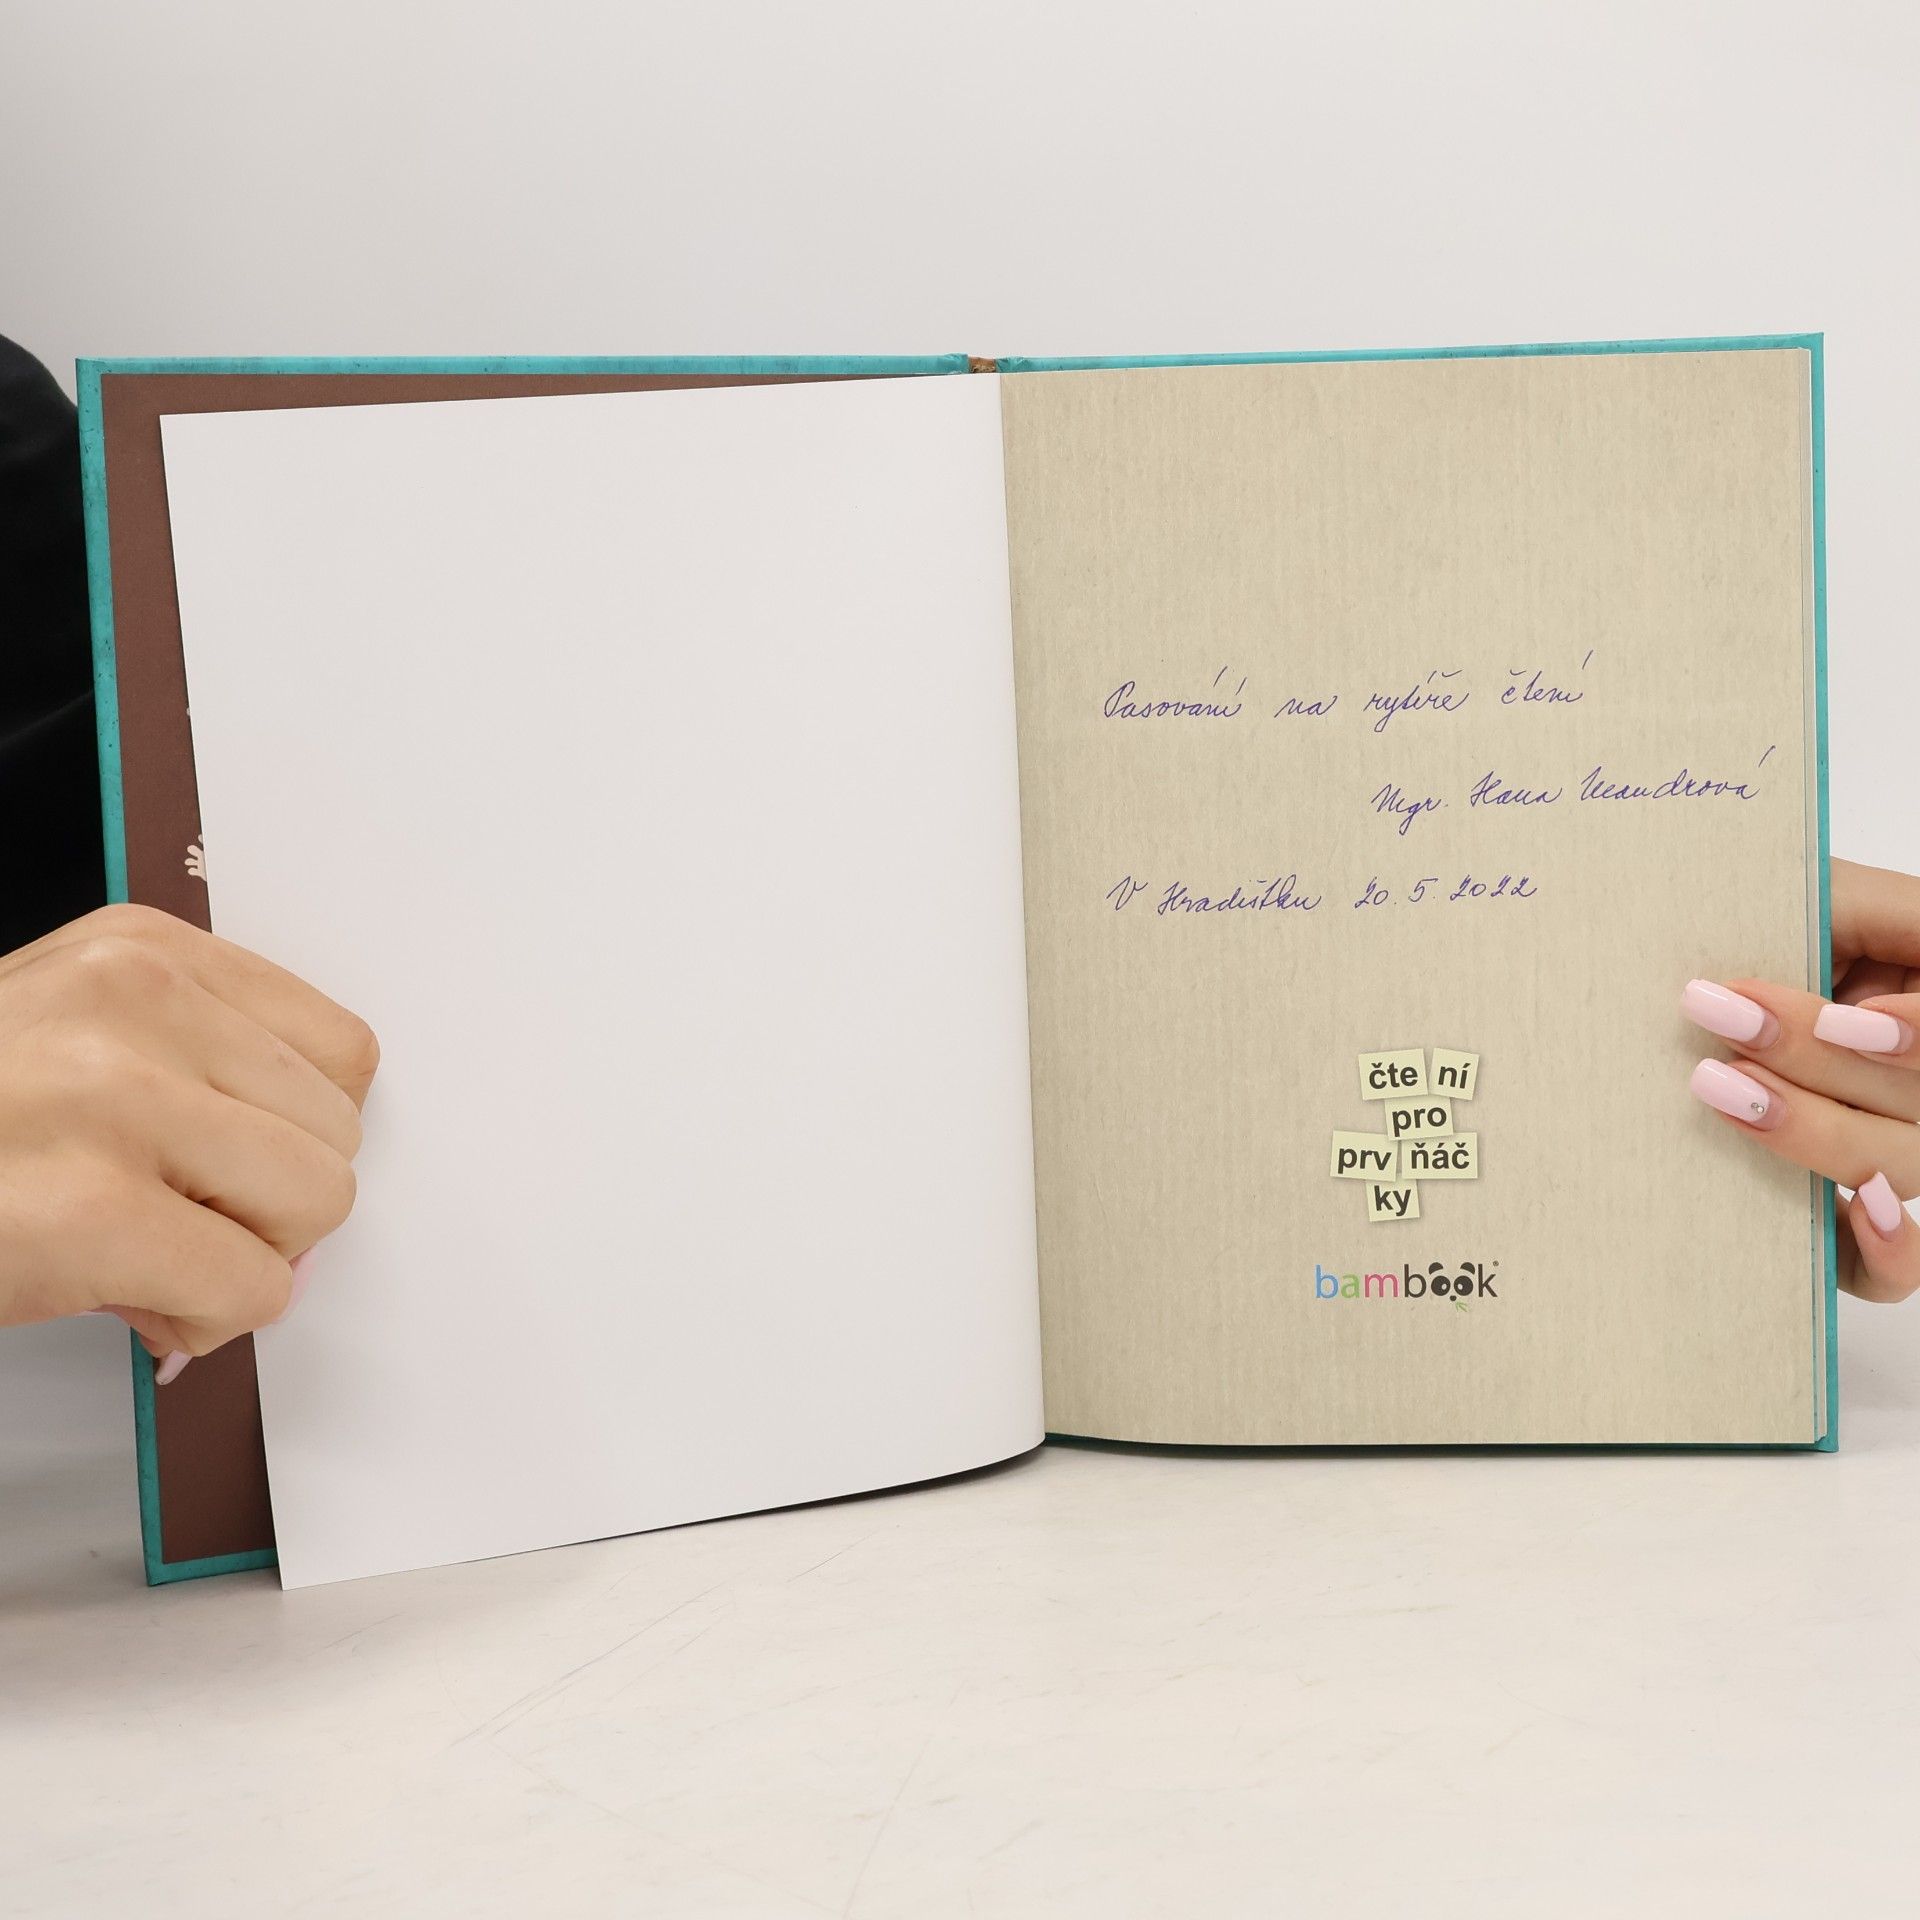 Pasování na rytíře čtení
Mgr. Hana Mandrová
V Hradištku 20. 5. 2022
čte ní
pro
prv ňáč
ky
bambook®